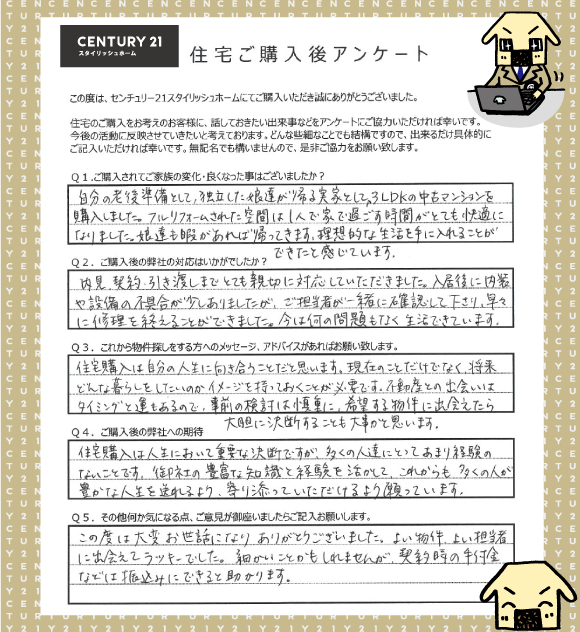 CENTURY 21
スタイリッシュホーム
住宅ご購入後アンケート
この度は、センチュリー21スタイリッシュホームにてご購入いただき誠にありがとうございました。
住宅のご購入をお考えのお客様に、話しておきたい出来事などをアンケートにご協力いただければ幸いです。
今後の活動に反映させていきたいと考えております。どんな些細なことでも結構ですので、出来るだけ具体的に
ご記入いただければ幸いです。無記名でも構いませんので、是非ご協力をお願い致します。
Q1.ご購入されてご家族の変化・良くなった事はございましたか?
自分の老後準備として,独立した娘達が帰る実家として,3LDKの中古マンションを
購入しました。フルリフォームされた空間は1人で家で過ごす時間がとても快適に
なりました。娘達も暇があれば帰ってきます。理想的な生活を手に入れることが
できたと感じています。
Q2.ご購入後の弊社の対応はいかがでしたか?
内見,契約,引き渡しまでとても親切に対応していただきました。入居後に内装
や設備の不具合が少しありましたが、ご担当者が一緒に確認して下さり,早々
に修理を終えることができました。今は何の問題もなく生活できています。
Q3.これから物件探しをする方へのメッセージ、アドバイスがあればお願い致します。
住宅購入は自分の人生に向き合うことだと思います。現在のことだけでなく,将来
どんな暮らしをしたいのかイメージを持っておくことが必要です。不動産との出会いは
タイミングと運もあるので,事前の検討は慎重に,希望する物件に出会えたら
大胆に決断することも大事かと思います。
Q4.ご購入後の弊社への期待
住宅購入は人生において重要な決断ですが、多くの人達にとってあまり経験の
ないことです。御社の豊富な知識と経験を活かして,これからも多くの人が
豊かな人生を送れるよう、寄り添っていただけるよう願っています。
Q5.その他何か気になる点、ご意見が御座いましたらご記入お願いします。
この度は大変お世話になりありがとうございました。よい物件,よい担当者
に出会えてラッキーでした。細かいことかもしれませんが,契約時の手付金
などは振込みにできると助かります。